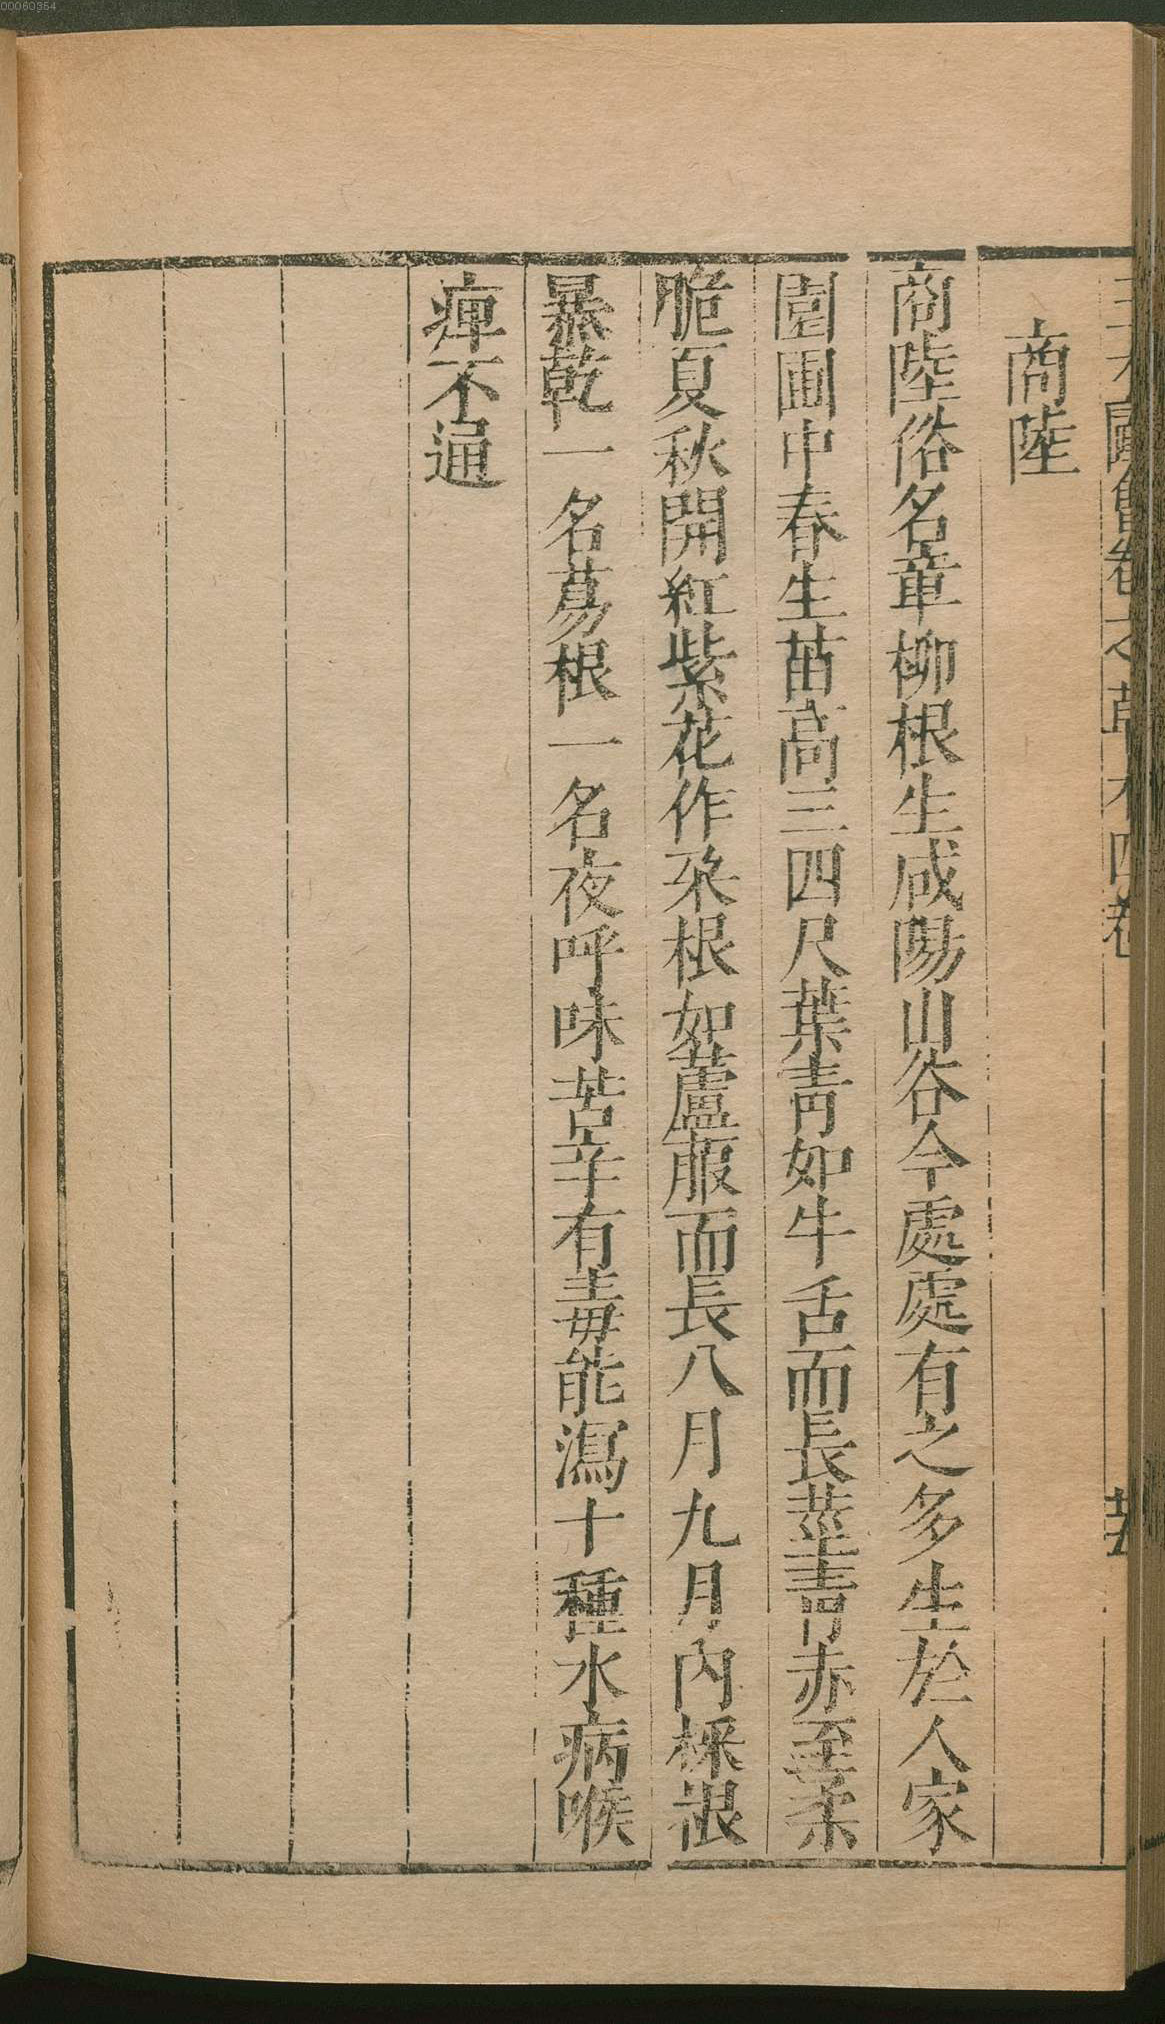 00060354
圖會卷之草木四卷
商陸
商陸俗名章柳根生咸陽山谷今處處有之多生於人家
園圃中春生苗高三四尺葉靑如牛舌而長莖靑赤至柔
脆夏秋開紅紫花作朶根如蘆菔而長八月九月內採根
暴乾一名蒚根一名夜呼味苦辛有毒能瀉十種水病喉
痺不通